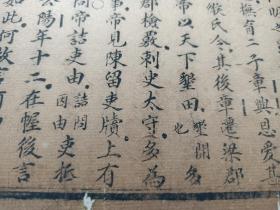 撫育二子章與恩愛甚
緱氏令其後章遷梁郡
帝以天下墾田墾開也多
郡檢覈刺史太守多為
事帝見陳留吏牘上有
問帝詰吏由詰問因由吏抵
陽年十二在幄後言
如此何故言